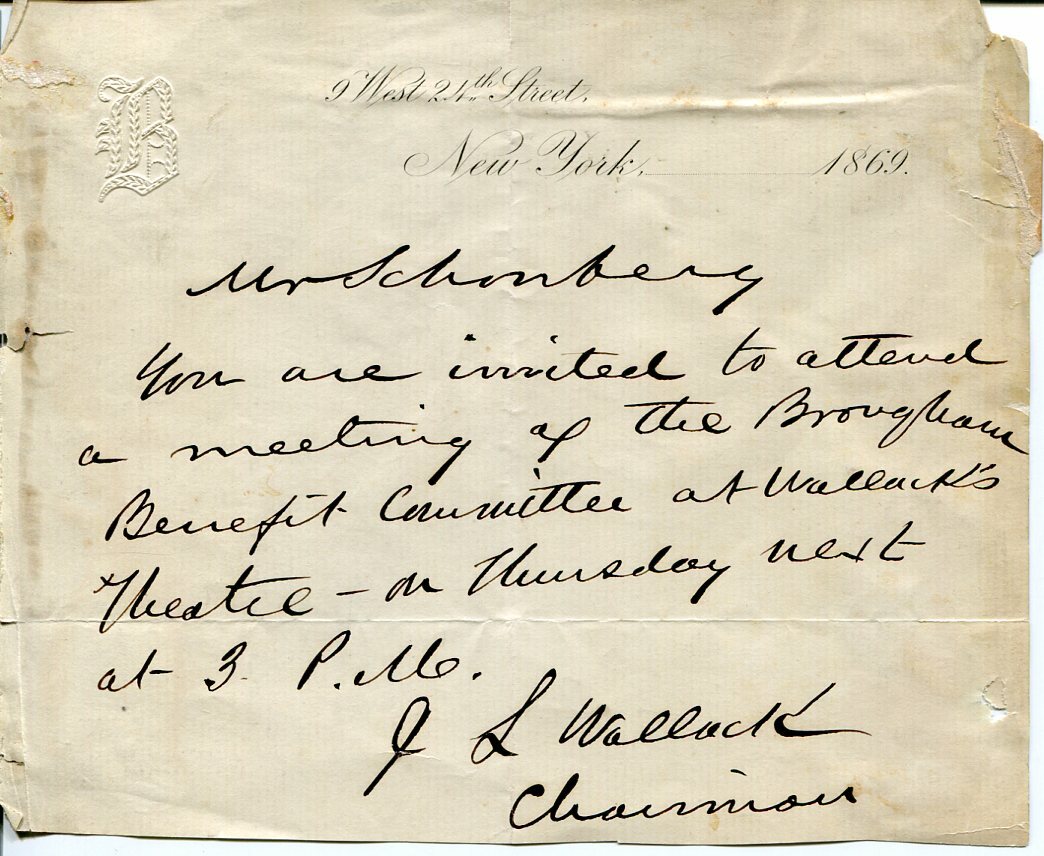 B
9 West 24th Street.
New York, 1869.
Mr Schonberg
You are invited to attend
a meeting of the Brougham
Benefit Committee at Wallack's
Theatre – on Thursday next
at 3 P.M.
J L Wallack
Chairman